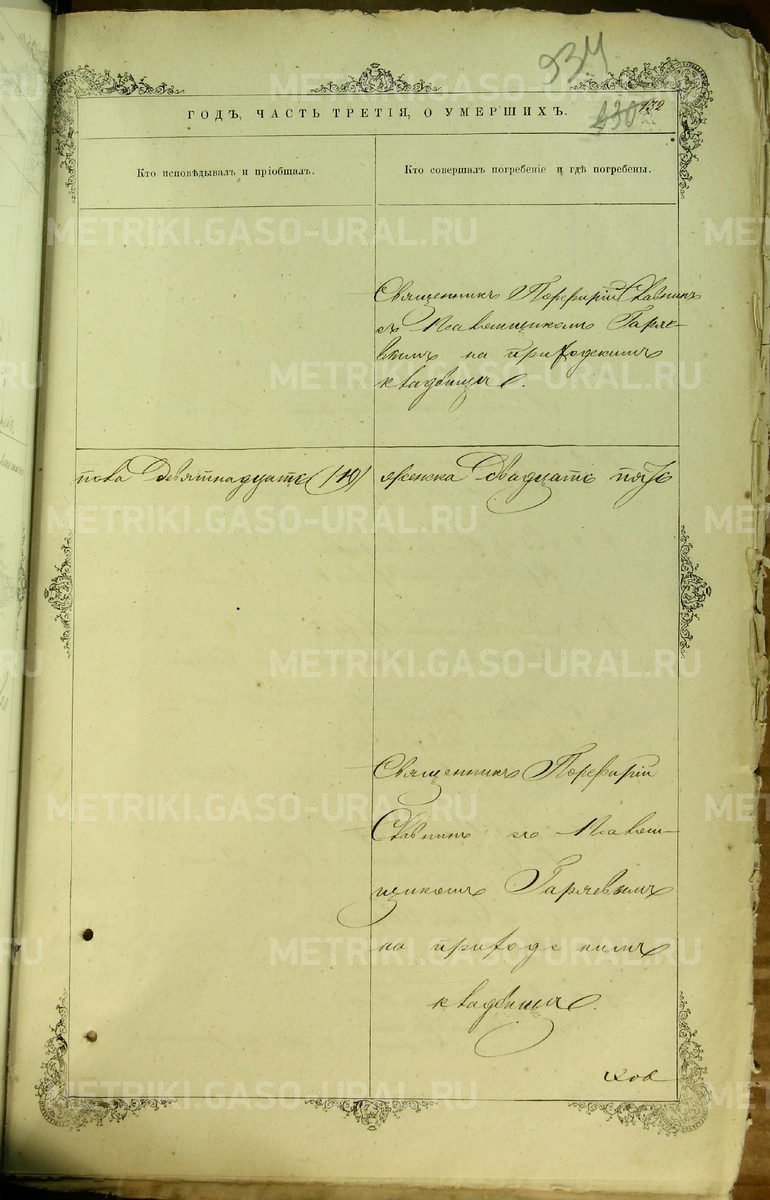 934
430 132
ГОДЪ, ЧАСТЬ ТРЕТІЯ, О УМЕРШИХЪ.
Кто исповѣдывалъ и пріобщалъ.
Кто совершалъ погребеніе и гдѣ погребены.
Священникъ Порфирій Славнинъ
съ Псаломщикомъ Гаряе-
вымъ на приходскимъ
кладбищѣ.
пола Девятнадцать (19)
женска двадцать пять
Священникъ Порфирій
Славнинъ съ Псалом-
щикомъ Гаряевымъ
на приходскимъ
кладбищѣ.
ков
METRIKI.GASO-URAL.RU